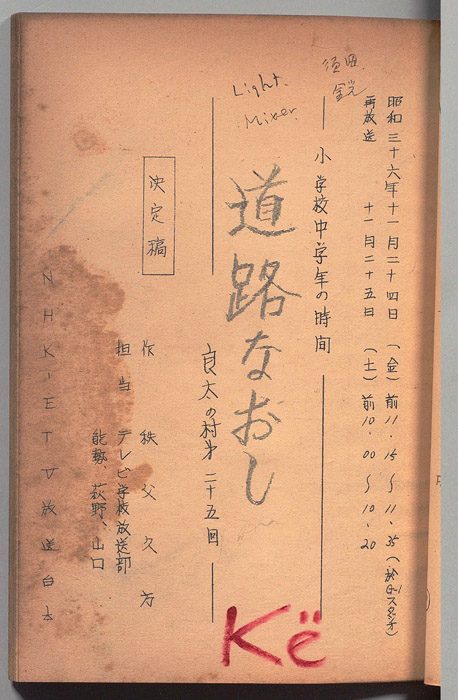 須田
鋭
昭和三十六年十一月二十四日 (金) 前11.15〜11.35 (於G-1スタジオ)
再放送 十一月二十五日 (土) 前10.00〜10.20
小学校中学年の時間
Light.
Mixer.
道路なおし
良太の村 第二十五回
決定稿
作 秩父久方
担当 テレビ学校放送部
能勢、萩野、山口
NHK-ETV放送台本
Kë